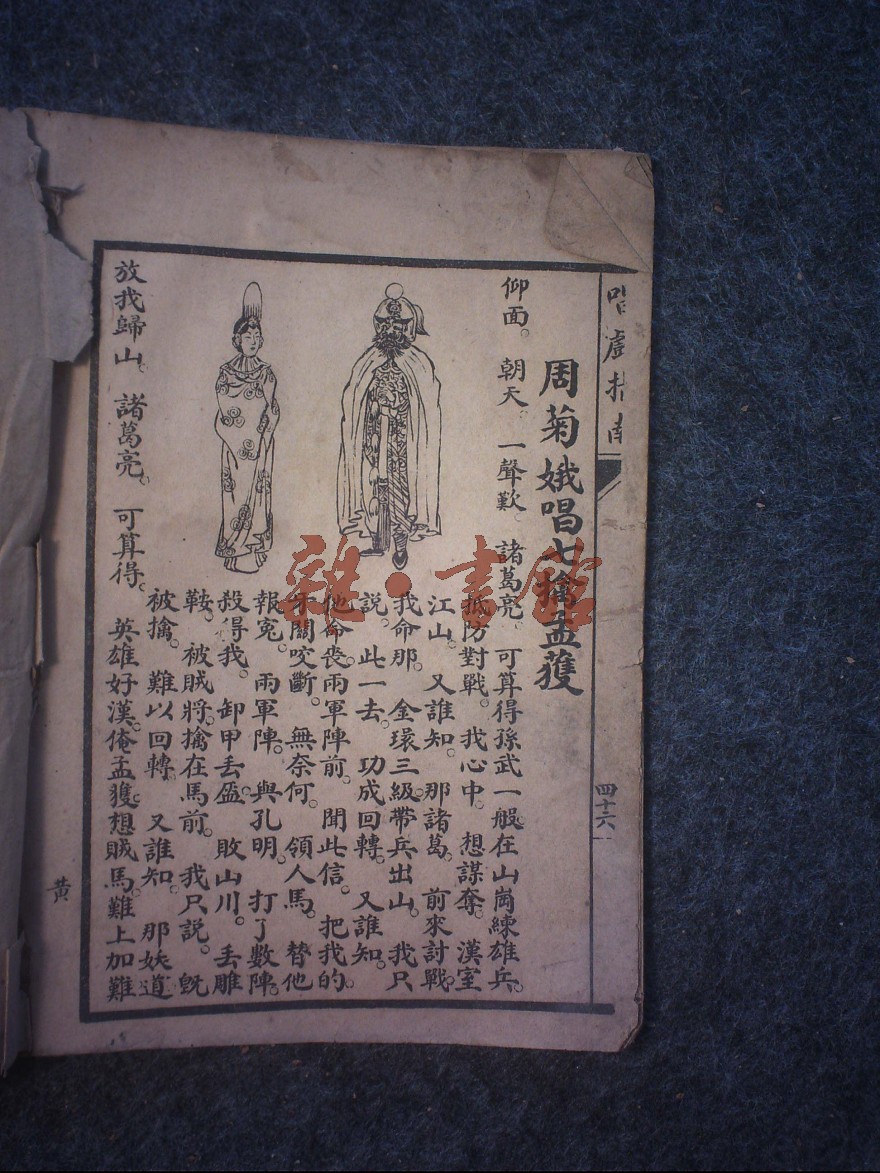 唱虛指南
四十六
周菊娥唱七擒孟獲
仰面。朝天。一聲歎。諸葛亮。可算得孫武一般在山崗練雄兵。
抵防對戰。我心中。想謀奪。漢室
江山。又誰知。那諸葛。前來討戰。
我命那。金環三級帶兵出山。我只
說。此一去。功成回轉。又誰知。
他命喪。兩軍陣前。聞此信。把我的。
牙關咬斷。無奈何。領人馬。替他
報冤。兩軍陣。與孔明。打了數陣。
殺得我。卸甲丟盔。敗山川。丟雕
鞍。被賊將。擒在馬前。我只說。旣
被擒。難以回轉。又誰知。那妖道
放我歸山。諸葛亮。可算得。英雄好漢。俺孟獲。想賊馬。難上加難
黄
雜·書館